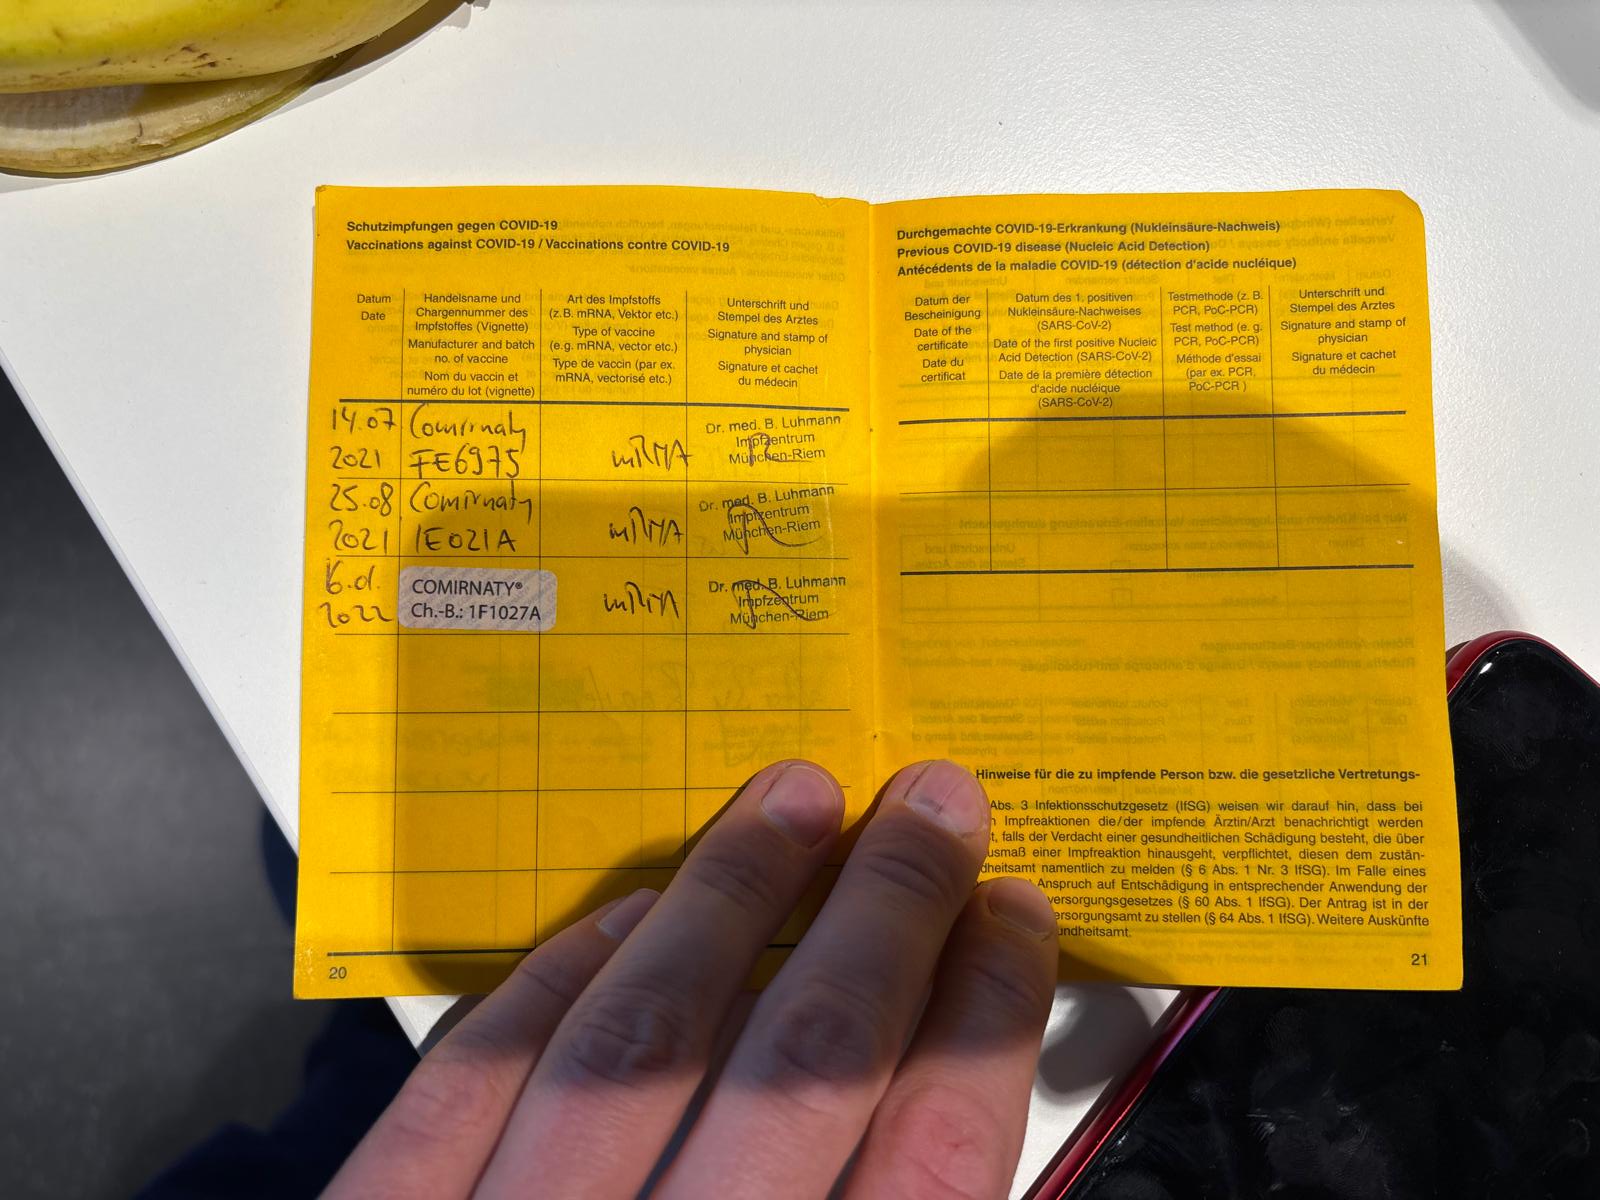 Schutzimpfungen gegen COVID-19
Vaccinations against COVID-19 / Vaccinations contre COVID-19
Datum
Date
Handelsname und
Chargennummer des
Impfstoffes (Vignette)
Manufacturer and batch
no. of vaccine
Nom du vaccin et
numéro du lot (vignette)
Art des Impfstoffs
(z.B. mRNA, Vektor etc.)
Type of vaccine
(e.g. mRNA, vector etc.)
Type de vaccin (par ex.
mRNA, vectorisé etc.)
Unterschrift und
Stempel des Arztes
Signature and stamp of
physician
Signature et cachet
du médecin
14.07
2021
Comirnaty
FE6975
mRNA
Dr. med. B. Luhmann
Impfzentrum
München-Riem
25.08
2021
Comirnaty
1E021A
mRNA
Dr. med. B. Luhmann
Impfzentrum
München-Riem
2022
COMIRNATY®
Ch.-B.: 1F1027A
mRNA
Dr. med. B. Luhmann
Impfzentrum
München-Riem
20
Durchgemachte COVID-19-Erkrankung (Nukleinsäure-Nachweis)
Previous COVID-19 disease (Nucleic Acid Detection)
Antécédents de la maladie COVID-19 (détection d'acide nucléique)
Datum der
Bescheinigung
Date of the
certificate
Date du
certificat
Datum des 1. positiven
Nukleinsäure-Nachweises
(SARS-CoV-2)
Date of the first positive Nucleic
Acid Detection (SARS-CoV-2)
Date de la première détection
d'acide nucléique
(SARS-CoV-2)
Testmethode (z. B.
PCR, PoC-PCR)
Test method (e. g.
PCR, PoC-PCR)
Méthode d'essai
(par ex. PCR,
PoC-PCR )
Unterschrift und
Stempel des Arztes
Signature and stamp of
physician
Signature et cachet
du médecin
Hinweise für die zu impfende Person bzw. die gesetzliche Vertretungs-
Abs. 3 Infektionsschutzgesetz (IfSG) weisen wir darauf hin, dass bei
Impfreaktionen die/der impfende Ärztin/Arzt benachrichtigt werden
falls der Verdacht einer gesundheitlichen Schädigung besteht, die über
usmaß einer Impfreaktion hinausgeht, verpflichtet, diesen dem zustän-
dheitsamt namentlich zu melden (§ 6 Abs. 1 Nr. 3 IfSG). Im Falle eines
Anspruch auf Entschädigung in entsprechender Anwendung der
versorgungsgesetzes (§ 60 Abs. 1 IfSG). Der Antrag ist in der
ersorgungsamt zu stellen (§ 64 Abs. 1 IfSG). Weitere Auskünfte
undheitsamt.
21